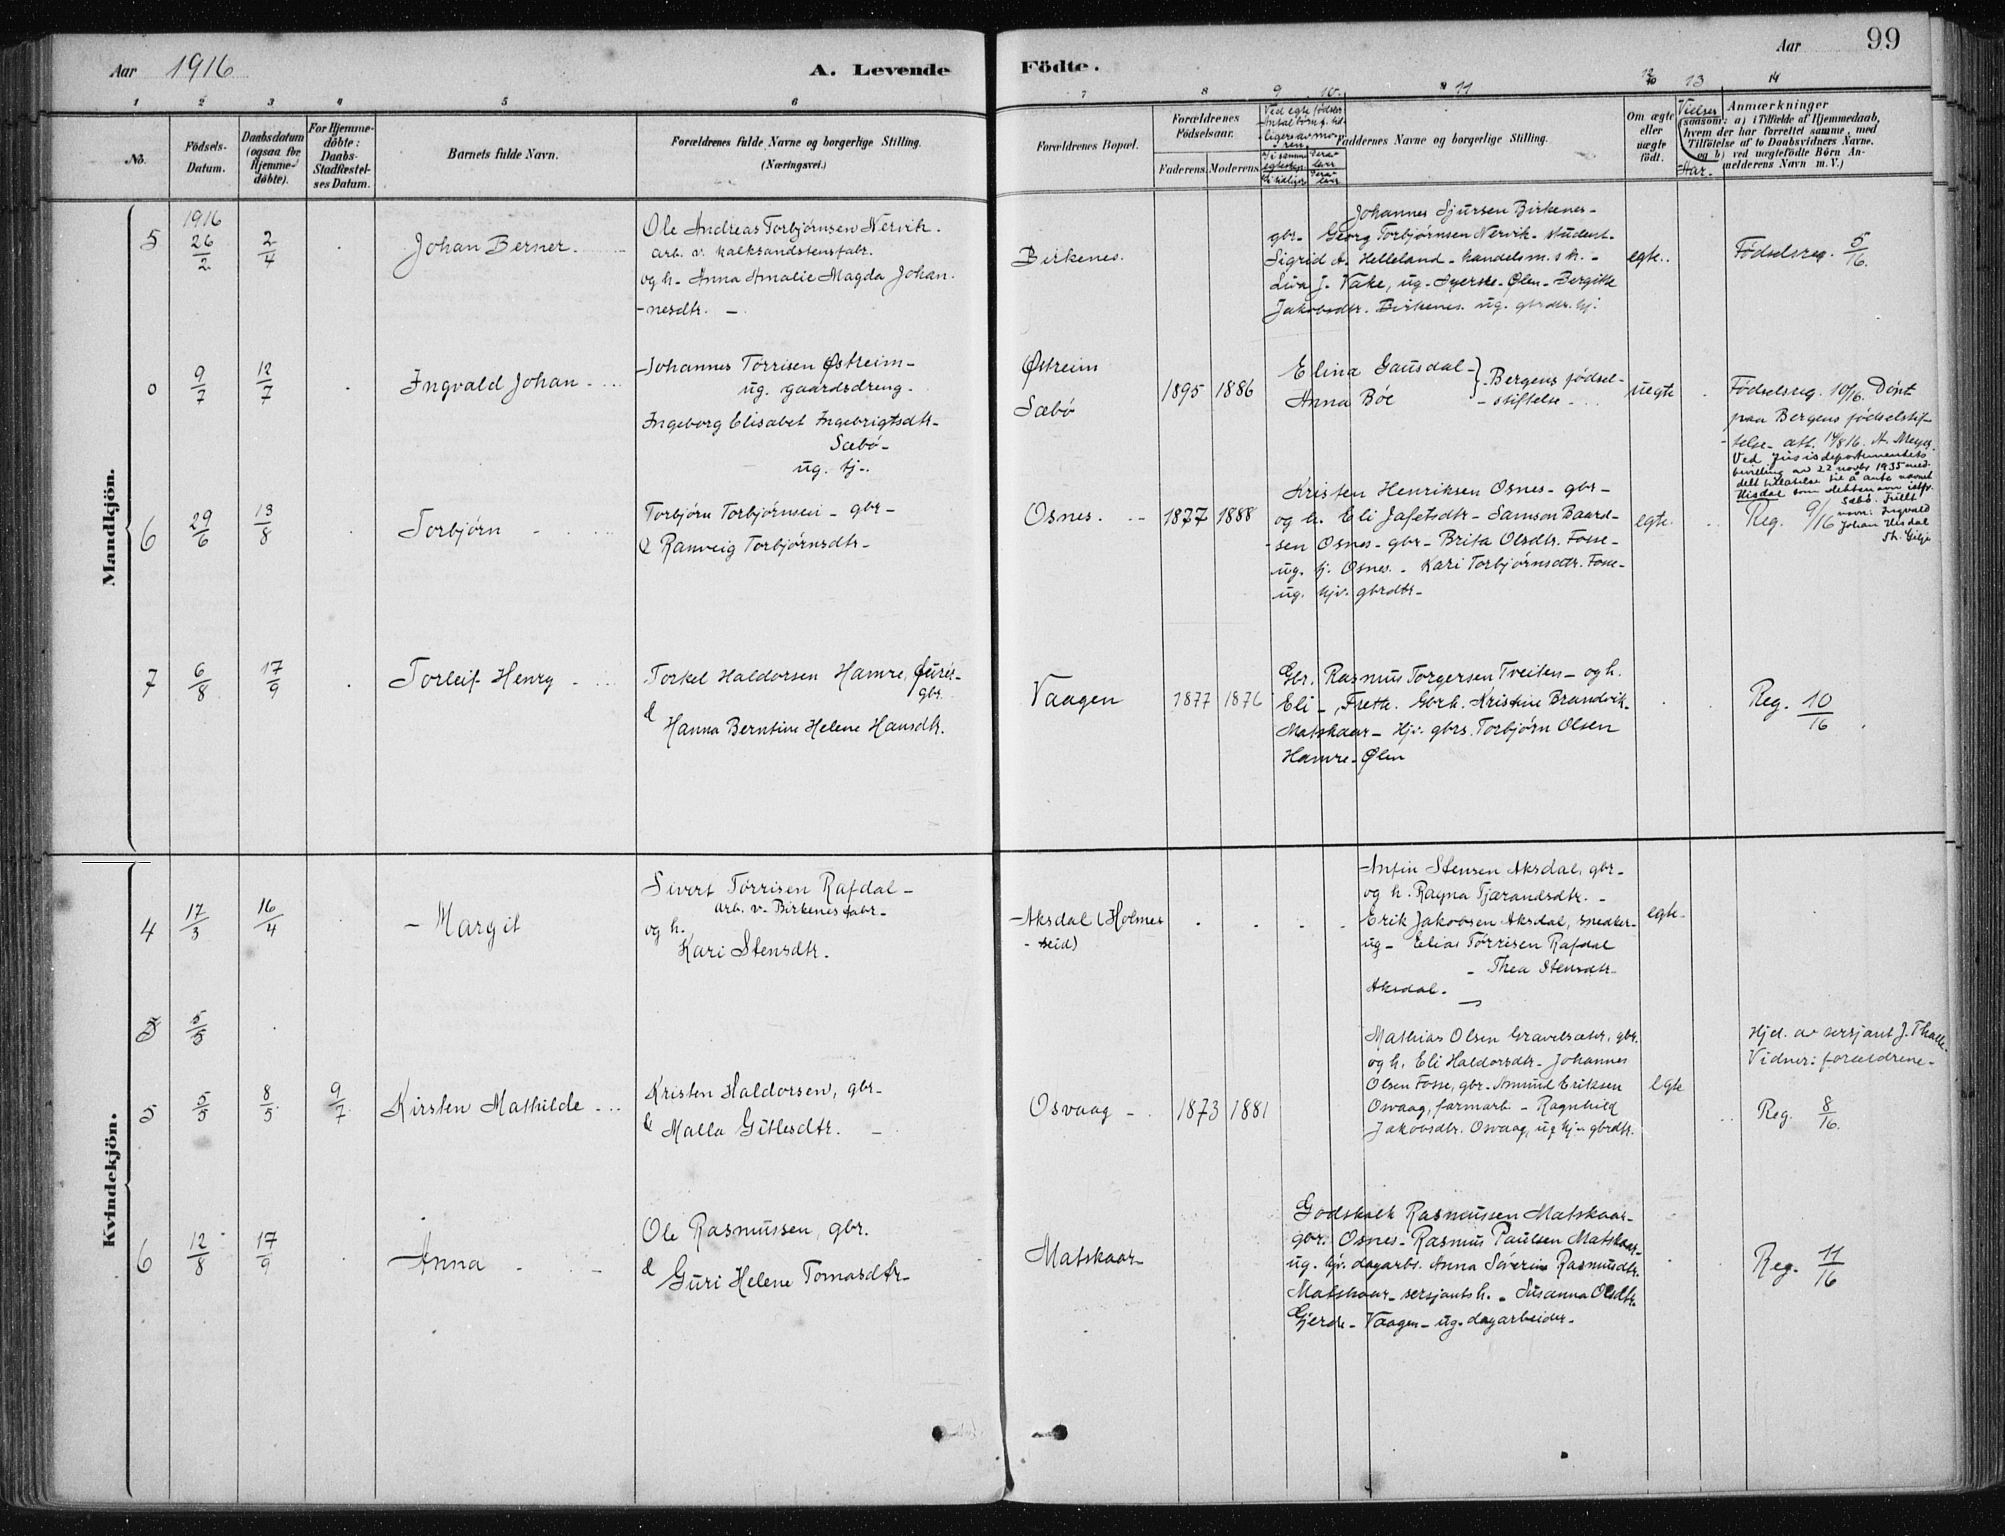 Aar 1916
A. Levende
Födte.
Aar
99
1 2 3 4 5 6 7 8 9 10. 11 12 13 14
No.
Födsels-
Datum.
Daabsdatum
(ogsaa for
Hjemme-
döbte).
For Hjemme-
döbte:
Daabs-
Stadfæstel-
ses Datum.
Barnets fulde Navn.
Forældrenes fulde Navne og borgerlige Stilling.
(Næringsvei.)
Forældrenes Bopæl.
Forældrenes
Födselsaar.
Faderens. Moderens.
Ved egte fødsler
Antal børn f. tid-
ligere av mo-
ren.
Faddernes Navne og borgerlige Stilling.
Om ægte
eller
uægte
födt.
Vielses
Aar.
Anmærkninger
saasom: a) i Tilfælde af Hjemmedaab,
hvem der har forrettet samme, med
Tilföielse af to Daabsvidners Navne,
og b) ved uægtefödte Börn An-
melderens Navn m. V.)
Mandkjön.
5
1916
26/2
2/4
Johan Berner.
Ole Andreas Torbjørnsen Nervik.
arb. v. kalksandstensfabr.
og h. Anna Amalie Magda Johan-
nesdtr. –
Birkenes.
Johannes Sjursen Birkenes-
gbr. Georg Torbjørnsen Nervik- student-
Sigrid A. Helleland - handelsm.s h. -
Liva J. Vake, ug. syerske- Ølen- Bergitte
Jakobsdtr. Birkenes. ug. gbrdtr. hj.
egte.
Fødselsreg. 5/16.
0
9/7
12/7
Ingvald Johan
Johannes Tørrisen Østreim-
ug. gaardsdreng-
Ingeborg Elisabet Ingebrigtsdtr-
Sæbø-
ug. hj-.
Østreim
Sæbø
1895 1886
Elina Gausdal -
Anna Böe
} Bergens födsel-
stiftelse
uegte
Fødselsreg. 10/16. Døpt
paa Bergens fødselstif-
telse- att. 14/8 16. A. Meyer.
Ved Jusisdepartementets
bevilling av 22 novbr 1935 med-
delt tillatelse til å anta navnet
Uisdal som slektsnavn istf.
Sæbø. Fullt
navn: Ingvald
Johan Uisdal
6
29/6
13/8
Torbjørn
Torbjørn Torbjørnsen - gbr-
& Ranveig Torbjørnsdtr-
Osnes.
1877 1888
Kristen Henriksen Osnes- gbr-
og h. Eli Jafetsdtr- Samson Baard-
sen Osnes- gbr- Brita Olsdtr. Fosse-
ug. hj. Osnes. - Kari Torbjørnsdtr. Fosse-
ug. hjv. gbrdtr-
egte.
Reg. 9/16
7
6/8
17/9
Torleif Henry
Torkel Haldorsen Hamre,
gbr.
& Hanna Berntine Helene Hansdtr.
Vaagen
1877 1876
Gbr. Rasmus Torgersen Tveiten- og h.
Eli -, Frette. Gbrh. Kristine Brandvik-
Matskaar- Hjv. gbrs. Torbjørn Olsen
Hamre- Ølen
Reg. 10/16
Kvindekjön.
4
17/3
16/4
- Margit
Sivert Tørrisen Rafdal -
arb. v. Birkenes fabr-
og h.
Kari Stensdtr.
Aksdal (Holmes
- seid)
Anfin Stensen Aksdal, gbr-
og h. Ragna Tjærandsdtr. -
Erik Jakobsen Aksdal, snedker-
ug- Elias Tørrisen Rafdal
- Thea Stensdtr-
Aksdal.
egte-
5
5/5
5
5/5
8/5
9/7
Kirsten Mathilde
Kristen Haldorsen, gbr-
& Malla Gitlesdtr. -
Osvaag -
1873 1881
Mathias Olsen Gravelsæter, gbr.
og h. Eli Haldorsdtr- Johannes
Olsen Fosse, gbr- Amund Eriksen
Osvaag, farmarb. - Ragnhild
Jakobsdtr. Osvaag, ug hj- gbrdtr.
egte
Hjd. av sersjant J. Thalle.
Vidner: forældrene-
Reg. 8/16.
6
12/8
17/9
Anna
Ole Rasmussen, gbr.
& Guri Helene Tomasdtr-
Matskaar-
Godskalk Rasmussen Matskaar-
gbr. Osnes- Rasmus Paulsen Matskaar-
ug. hjv. dagarb. Anna Severine Rasmusdtr.
Matskaar- sersjants h. - Susanna Olsdtr.
Gjerde- Vaagen- ug. dagarbeider-
Reg. 11/16